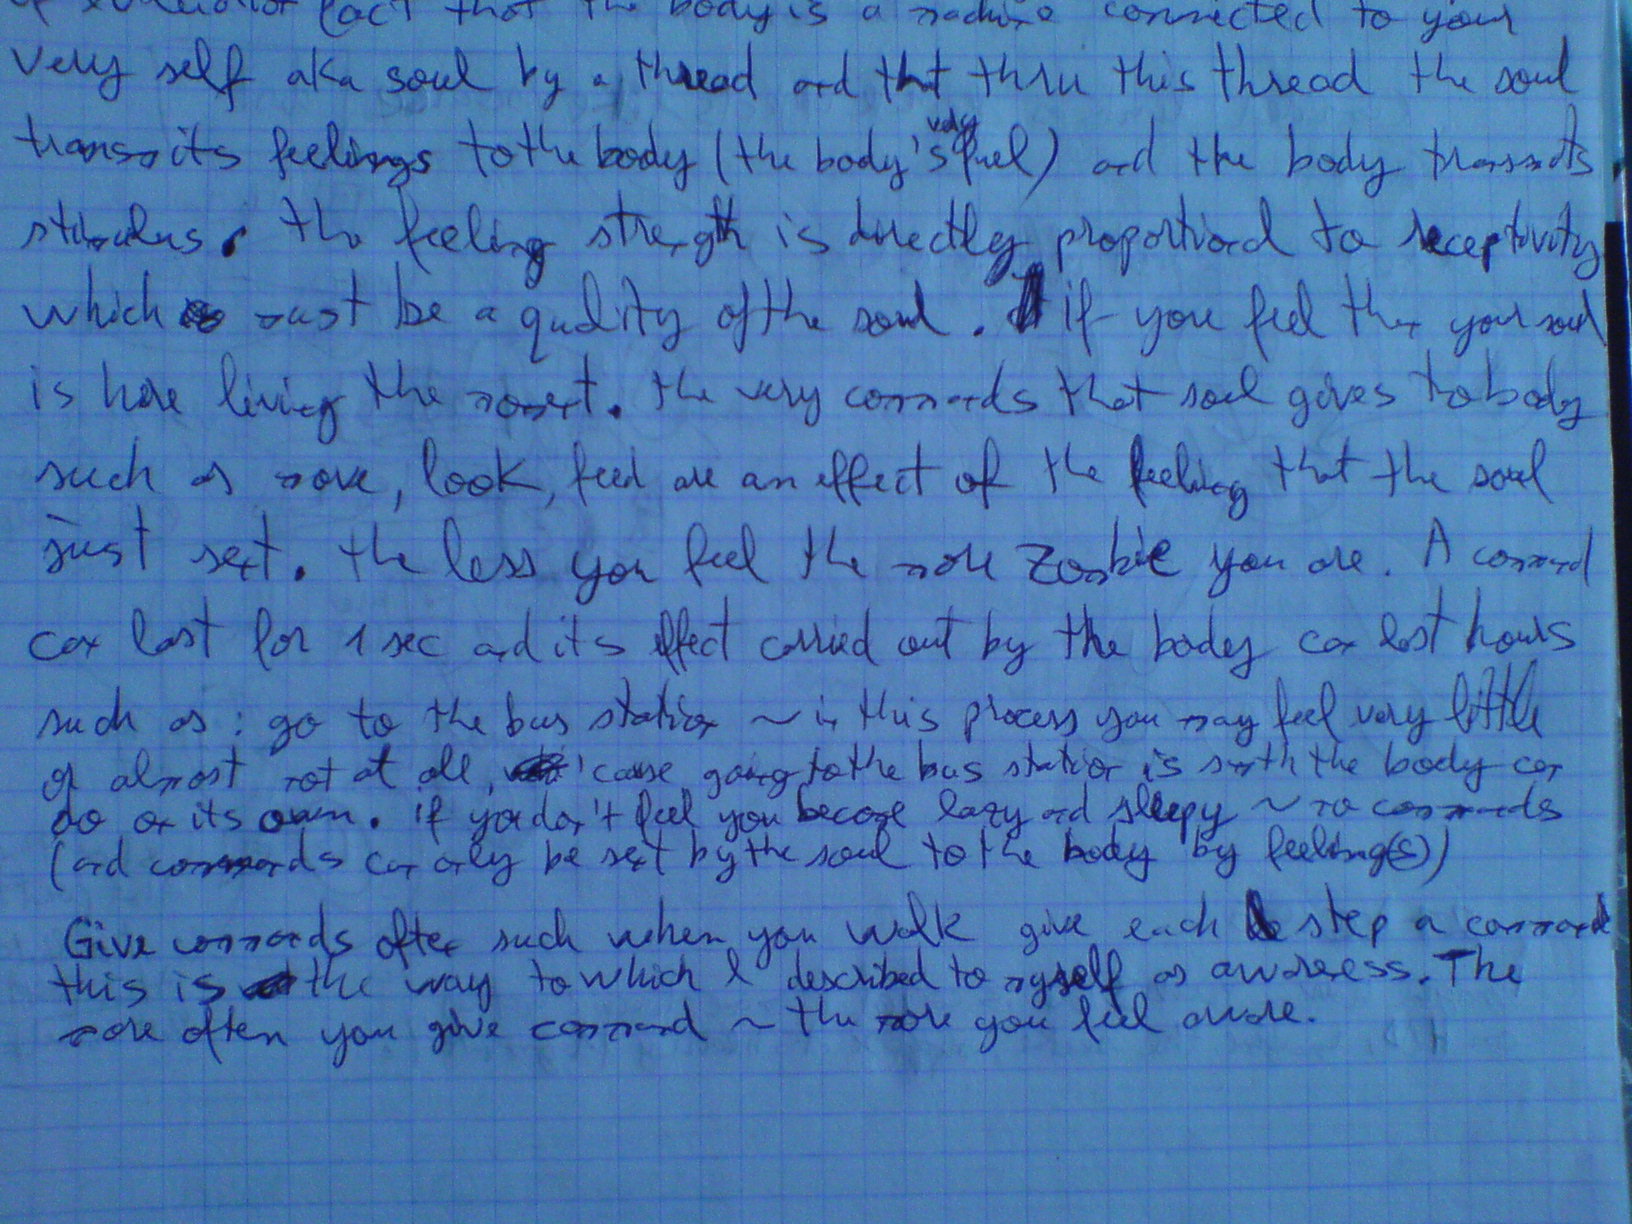 fact that the body is a machine connected to your
very self aka soul by a thread and that thru this thread the soul
transmits feelings to the body (the body's very fuel) and the body transmits
stimulus. the feeling strength is directly proportional to receptivity
which must be a quality of the soul. if you feel then your soul
is here living the moment. the very commands that soul gives to body
such as move, look, feed are an effect of the feeling that the soul
just sent. the less you feel the more zombie you are. A command
can last for 1 sec and its effect carried out by the body can last hours
such as: go to the bus station ~ in this process you may feel very little
or almost not at all, 'cause going to the bus station is smth the body can
do on its own. if you don't feel you become lazy and sleepy ~ no commands
(and commands can only be sent by the soul to the body by feeling(s))
Give commands often such when you walk give each step a command
this is the way to which I described to myself as awareness. The
more often you give command ~ the more you feel aware.